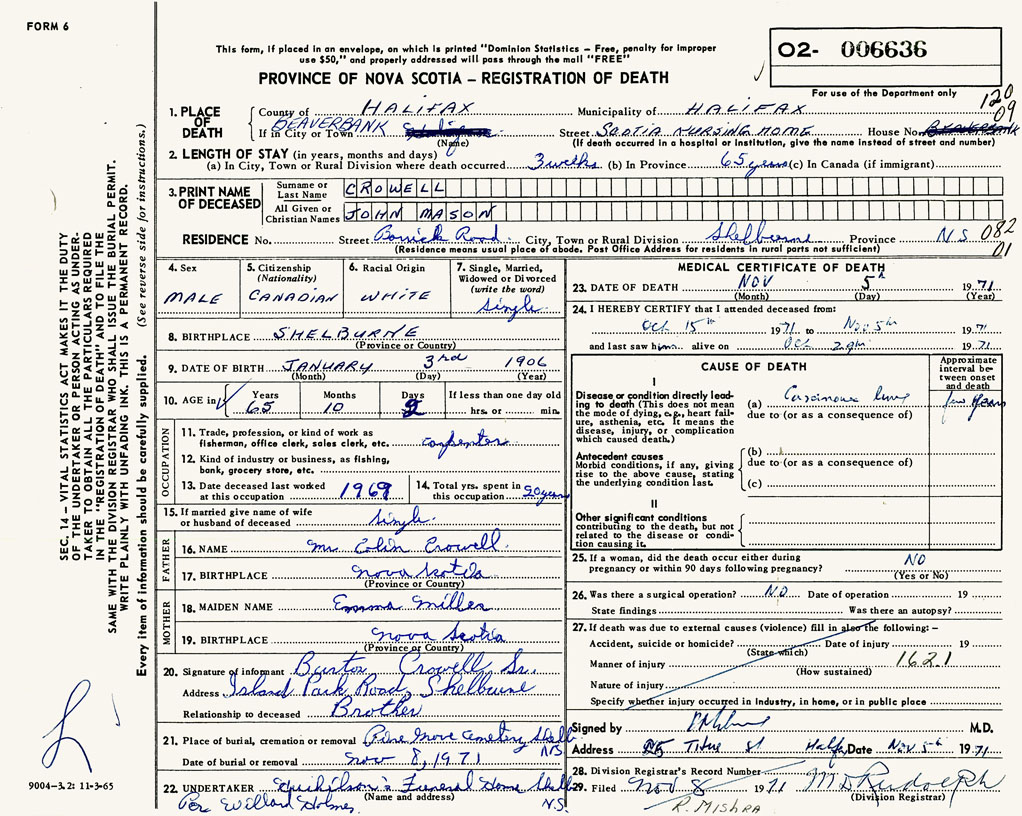 FORM 6
This form, if placed in an envelope, on which is printed "Dominion Statistics – Free, penalty for improper
use $50," and properly addressed will pass through the mail "FREE"
PROVINCE OF NOVA SCOTIA – REGISTRATION OF DEATH
02- 006636
For use of the Department only
120
09
1. PLACE OF DEATH
County of HALIFAX Municipality of HALIFAX
If in City or Town BEAVERBANK (Name) Street SCOTIA NURSING HOME House No.
(If death occurred in a hospital or institution, give the name instead of street and number)
2. LENGTH OF STAY (in years, months and days)
(a) In City, Town or Rural Division where death occurred 3 weeks (b) In Province 65 years (c) In Canada (if immigrant)
3. PRINT NAME OF DECEASED
Surname or Last Name CROWELL
All Given or Christian Names JOHN MASON
RESIDENCE No. Street Road City, Town or Rural Division Shelburne Province N.S. 082
(Residence means usual place of abode. Post Office Address for residents in rural parts not sufficient) 01
4. Sex MALE
5. Citizenship (Nationality) CANADIAN
6. Racial Origin WHITE
7. Single, Married, Widowed or Divorced (write the word) Single
8. BIRTHPLACE SHELBURNE
(Province or Country)
9. DATE OF BIRTH JANUARY 3rd 1906
(Month) (Day) (Year)
10. AGE in Years 65 Months 10 Days If less than one day old hrs. or min.
OCCUPATION
11. Trade, profession, or kind of work as fisherman, office clerk, sales clerk, etc. carpenter
12. Kind of industry or business, as fishing, bank, grocery store, etc.
13. Date deceased last worked at this occupation 1969
14. Total yrs. spent in this occupation 20 years
15. If married give name of wife or husband of deceased Single
FATHER
16. NAME Mr. Colin Crowell
17. BIRTHPLACE Nova Scotia
(Province or Country)
MOTHER
18. MAIDEN NAME Emma Miller
19. BIRTHPLACE Nova Scotia
(Province or Country)
20. Signature of informant Burton Crowell Sr.
Address Island Park Road, Shelburne
Relationship to deceased Brother
21. Place of burial, cremation or removal Pine Grove Cemetery Shelb N.S.
Date of burial or removal Nov 8, 1971
22. UNDERTAKER Funeral Home Shelb N.S.
(Name and address)
Per Willard Holmes
MEDICAL CERTIFICATE OF DEATH
23. DATE OF DEATH NOV 5th 1971
(Month) (Day) (Year)
24. I HEREBY CERTIFY that I attended deceased from:
Oct 15th 1971 to Nov 5th 1971
and last saw him alive on Oct 29th 1971
CAUSE OF DEATH
Approximate interval between onset and death
I
Disease or condition directly leading to death (This does not mean the mode of dying, e.g., heart failure, asthenia, etc. It means the disease, injury, or complication which caused death.)
(a) Carcinoma lung few years
due to (or as a consequence of)
Antecedent causes
Morbid conditions, if any, giving rise to the above cause, stating the underlying condition last.
(b)
due to (or as a consequence of)
(c)
II
Other significant conditions contributing to the death, but not related to the disease or condition causing it.
25. If a woman, did the death occur either during pregnancy or within 90 days following pregnancy? NO
(Yes or No)
26. Was there a surgical operation? NO Date of operation 19
State findings Was there an autopsy?
27. If death was due to external causes (violence) fill in also the following: –
Accident, suicide or homicide? Date of injury 19
(State which)
Manner of injury 1621
(How sustained)
Nature of injury
Specify whether injury occurred in industry, in home, or in public place
Signed by M.D.
Address Titus St Halifx Date Nov. 5th 1971
28. Division Registrar's Record Number
29. Filed Nov 8 1971 M D Rudolph
(Division Registrar)
R. MISHRA
SEC. 14 – VITAL STATISTICS ACT MAKES IT THE DUTY
OF THE UNDERTAKER OR PERSON ACTING AS UNDER-
TAKER TO OBTAIN ALL THE PARTICULARS REQUIRED
IN THE "REGISTRATION OF DEATH" AND TO FILE THE
SAME WITH THE DIVISION REGISTRAR WHO SHALL ISSUE THE BURIAL PERMIT.
WRITE PLAINLY WITH UNFADING INK. THIS IS A PERMANENT RECORD.
Every item of information should be carefully supplied. (See reverse side for instructions.)
9004-3.2: 11-3-65